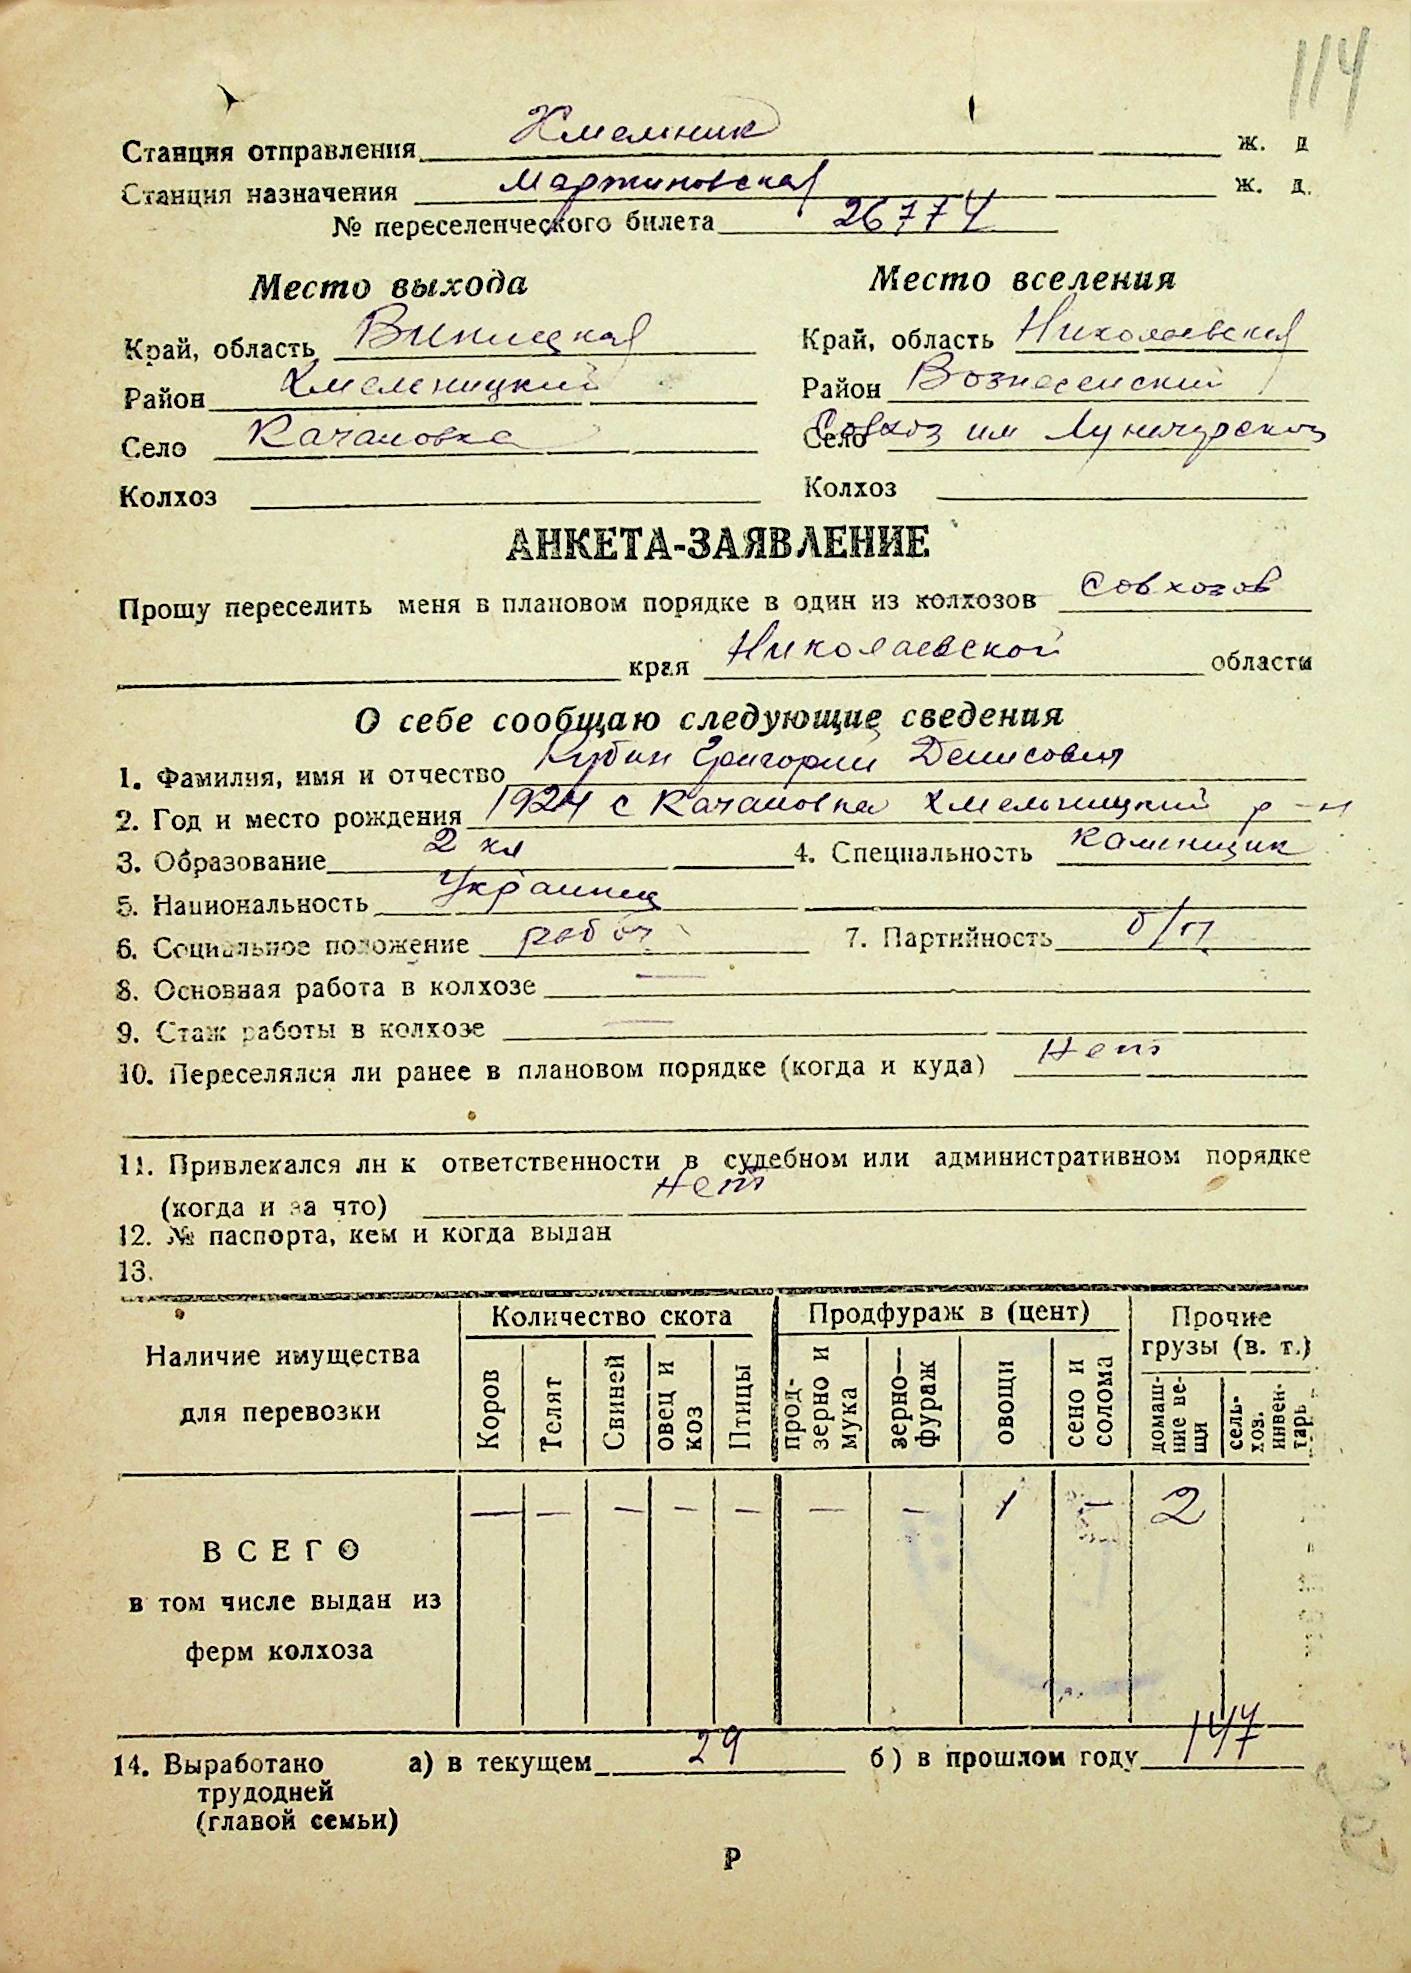 114
Станция отправления Хмельник ж. д
Станция назначения Мартиновская ж. д.
№ переселенческого билета 26774
Место выхода
Место вселения
Край, область Виницкая
Край, область Николаевская
Район Хмельницкий
Район Вознесенский
Село Качановка
Село Совхоз им
Колхоз
Колхоз
АНКЕТА-ЗАЯВЛЕНИЕ
Прошу переселить меня в плановом порядке в один из колхозов совхозов
края Николаевской области
О себе сообщаю следующие сведения
1. Фамилия, имя и отчество Кубин Григорий Денисович
2. Год и место рождения 1924 с Качановка Хмельницкий р-н
3. Образование 2 кл 4. Специальность каменщик
5. Национальность Украинец
6. Социальное положение рабоч 7. Партийность б/п
8. Основная работа в колхозе —
9. Стаж работы в колхозе —
10. Переселялся ли ранее в плановом порядке (когда и куда) Нет
11. Привлекался ли к ответственности в судебном или административном порядке
(когда и за что) нет
12. № паспорта, кем и когда выдан
13.
Наличие имущества для перевозки
Количество скота
Продфураж в (цент)
Прочие грузы (в. т.)
Коров
Телят
Свиней
овец и коз
Птицы
прод-зерно и мука
зерно—фураж
овощи
сено и солома
домаш-ние ве-щи
сель-хоз. инвен-тарь
ВСЕГО — — — — — — — 1 — 2
в том числе выдан из
ферм колхоза
14. Выработано а) в текущем 29 б) в прошлом году 147
трудодней
(главой семьи)
Р